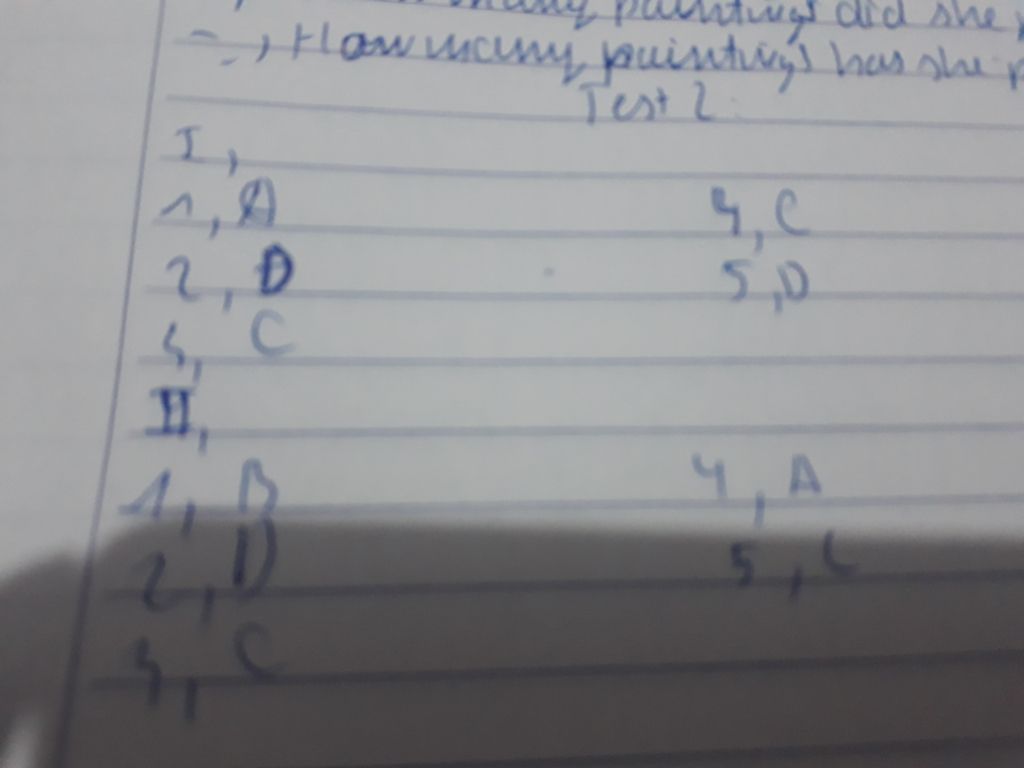 many paintings did she
-, How many paintings has she p
Test 2
I,
1, A 4, C
2, D 5, D
3, C
II,
1, B 4, A
2, D 5, C
3, C